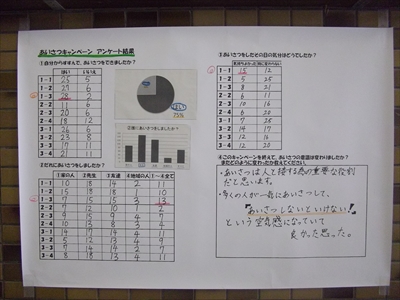 あいさつキャンペーン アンケート結果
①自分からすすんで、あいさつをできましたか?
はい いいえ
1-1 25 5
1-2 27 6
1-3 28 2
2-2 11
2-3 20 6
2-4 18 12
3-1 26 6
3-2 23 8
3-3 17 11
3-4 21 11
75%
②誰にあいさつをしましたか?
②だれにあいさつをしましたか?
①家の人 ②先生 ③友達 ④地域の人 ①~④全て
1-1 10 18 14 2 11
1-2 15 18 18 10
1-3 7 15 15 3 13
2-2 7 12 10 1 2
2-3 9 15 9 4 7
2-4 10 13 8 3 4
3-1 14 17 14 4 11
3-2 5 12 13 4 9
3-3 7 14 14 4 7
3-4 8 18 13 4 11
③あいさつをしたその日の気分はどうでしたか?
気持ちよかった 特に変わらない
1-1 15 12
1-2 25 8
1-3 8 21
2-2 6 11
2-3 10 16
2-4 6 20
3-1 7 25
3-2 14 17
3-3 12 16
3-4 12 20
④このキャンペーンを終えて、あいさつの意識は変わりましたか?
またどのように変わったか教えてください。
・あいさつは人と接する為の重要な役割
だと思います。
・多くの人が一斉にあいさつして、
『あいさつしないといけない!』
という空気感になっていて
良かった思った。